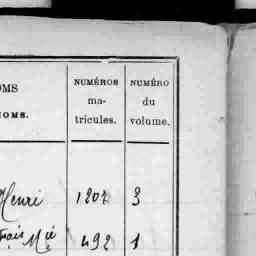 OMS
NOMS.
NUMÉROS
ma-
tricules.
NUMÉRO
du
volume.
Henri 1202 3
492 1